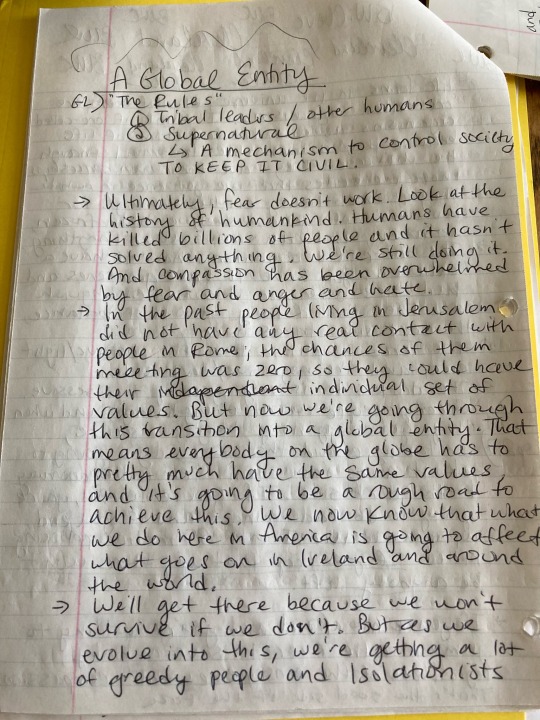 and
A Global Entity
GL) "The Rules"
① Tribal leaders / other humans
② Supernatural
↳ A mechanism to control society
TO KEEP IT CIVIL.
→ Ultimately, fear doesn't work. Look at the
history of humankind. Humans have
killed billions of people and it hasn't
solved anything. We're still doing it.
And compassion has been overwhelmed
by fear and anger and hate.
→ In the past people living in Jerusalem
did not have any real contact with
people in Rome, the chances of them
meeting was zero, so they could have
their independent individual set of
values. But now we're going through
this transition into a global entity. That
means everybody on the globe has to
pretty much have the same values,
and it's going to be a rough road to
achieve this. We now know that what
we do here in America is going to affect
what goes on in Ireland and around
the world.
→ We'll get there because we won't
survive if we don't. But as we
evolve into this, we're getting a lot
of greedy people and Isolationists